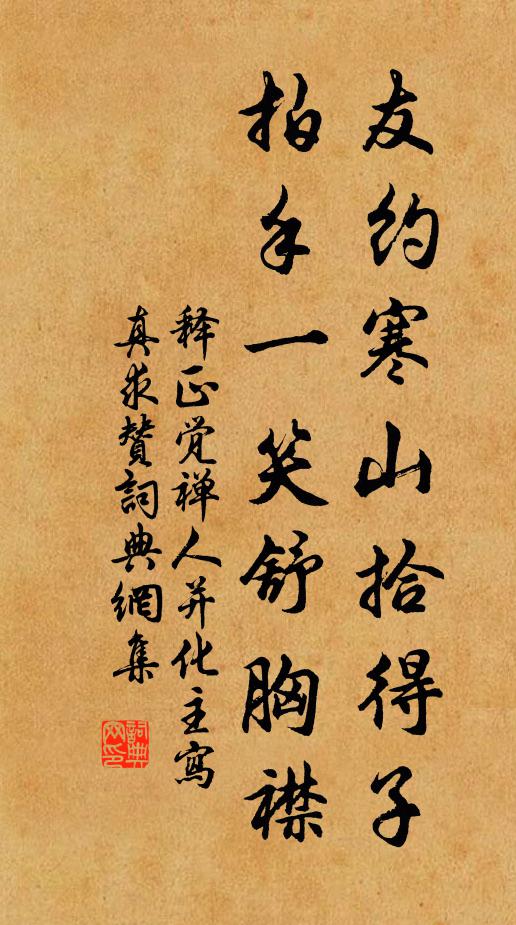 友约寒山拾得子
拍手一笑舒胸襟
释正觉禅人并化主寫
真求赞詞典網集
詞典
网印